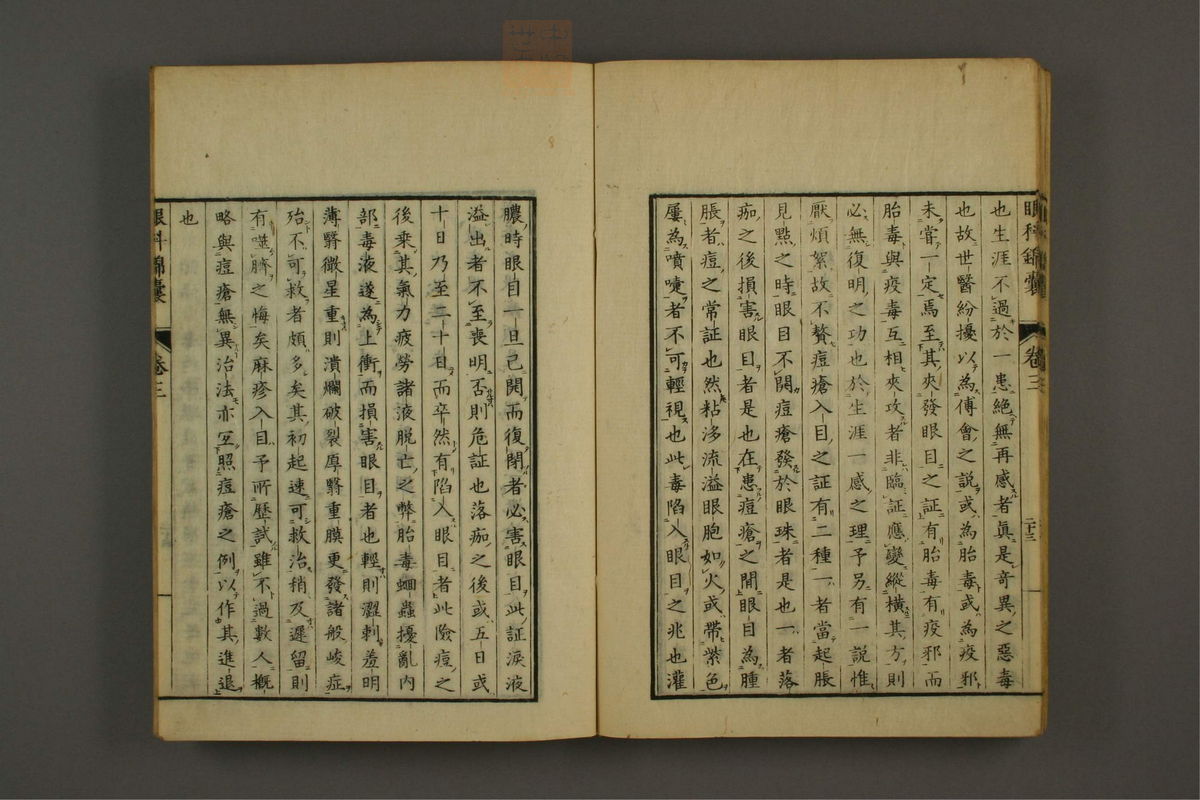 眼科錦囊 卷三 二十三
也生涯不過於一患絕無再感者真是奇異之惡毒
也故世醫紛擾以為傅會之說或為胎毒或為疫邪
未嘗一定焉至其夾發眼目之証有胎毒有疫邪而
胎毒與疫毒互相夾攻者非臨証應變縱橫其方則
必無復明之功也於生涯一感之理予另有一說惟
厭煩絮故不贅痘瘡入目之証有二種一者當起脹
見點之時眼目不開痘瘡發於眼珠者是也一者落
痂之後損害眼目者是也在患痘瘡之間眼目為腫
脹者痘之常証也然粘涕流溢眼胞如火或帶紫色
屢為噴嚏者不可輕視也此毒陷入眼目之兆也灌
膿時眼目一旦已開而復閉者必害眼目此証淚液
溢出者不至喪明否則危証也落痂之後或五日或
十日乃至二十日而卒然有陷入眼目者此險痘之
後乘其氣力疲勞諸液脫亡之弊胎毒蛔蟲擾亂內
部毒液遂為上衝而損害眼目者也輕則澀刺羞明
薄翳微星重則潰爛破裂厚翳重膜更發諸般峻症
殆不可救者頗多矣其初起速可救治稍及遲留則
有噬臍之悔矣麻疹入目予所歷試雖不過數人概
略與痘瘡無異治法亦互照痘瘡之例以作其進退
也
眼科錦囊 卷三